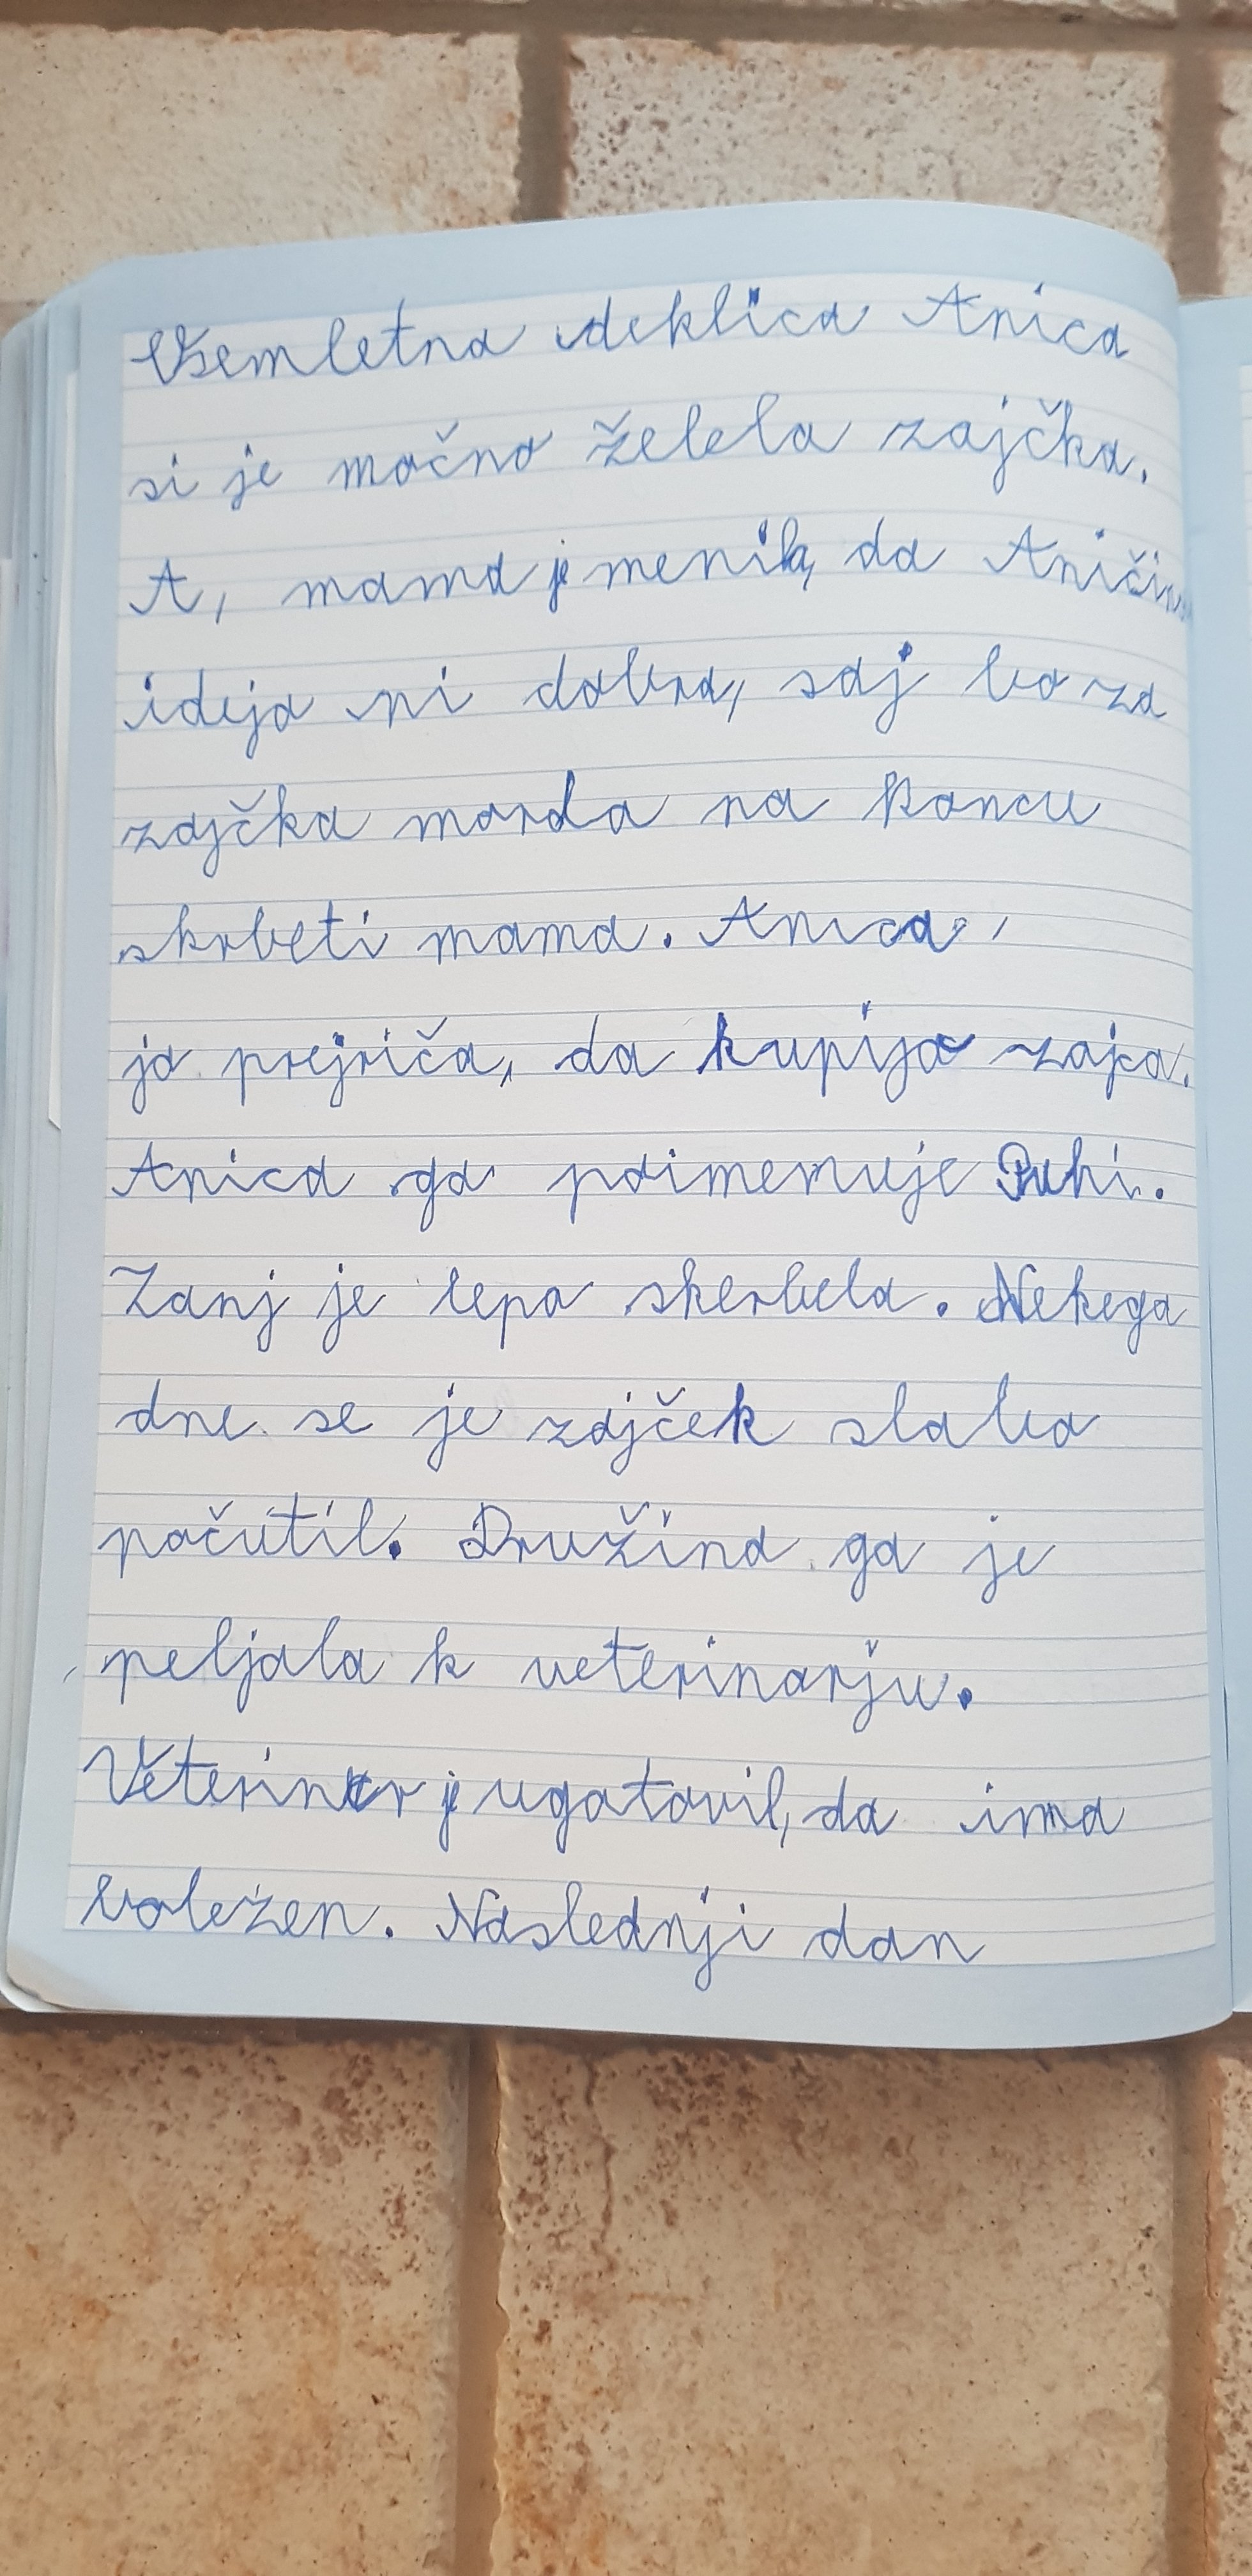 Vsemletna deklica Anica
si je močno želela zajčka.
A, mama je menila, da Aničina
ideja ni dobra, saj bo za
zajčka morda na koncu
skrbeti mama. Anica,
jo prejriča, da kupijo zajca.
Anica ga poimenuje Puhi.
Zanj je lepo skerbela. Nekega
dne se je zajček slabo
počutil. Družina ga je
peljala k veterinarju.
Veterinar je ugotovil, da ima
boležen. Naslednji dan